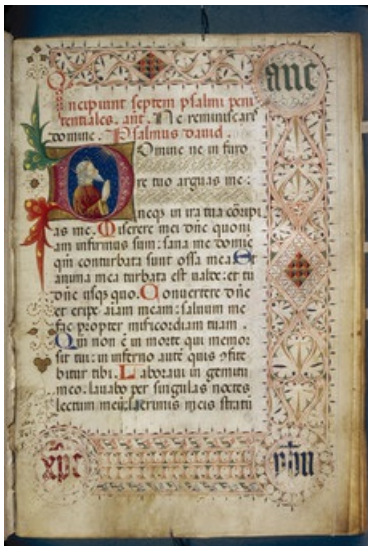 anc
Incipiunt septem psalmi peni
tentiales. ant. Ne reminiscaris
domine. Psalmus david.
Domine ne in furo
re tuo arguas me:
neqꝫ in ira tua corripi
as me. Miserere mei dñe quoni
am infirmus sum: sana me domine
qm̄ conturbata sunt ossa mea. Et
anima mea turbata est valde: et tu
dñe usqꝫ quo. Convertere dñe
et eripe aīam meam: salvum me
fac propter misericordiam tuam.
Qm̄ non ē in morte qui memor
sit tui: in inferno autē quis ꝯfite
bitur tibi. Laboravi in gemitu
meo: lavabo per singulas noctes
lectum meū: lacrimis meis stratū
xpc